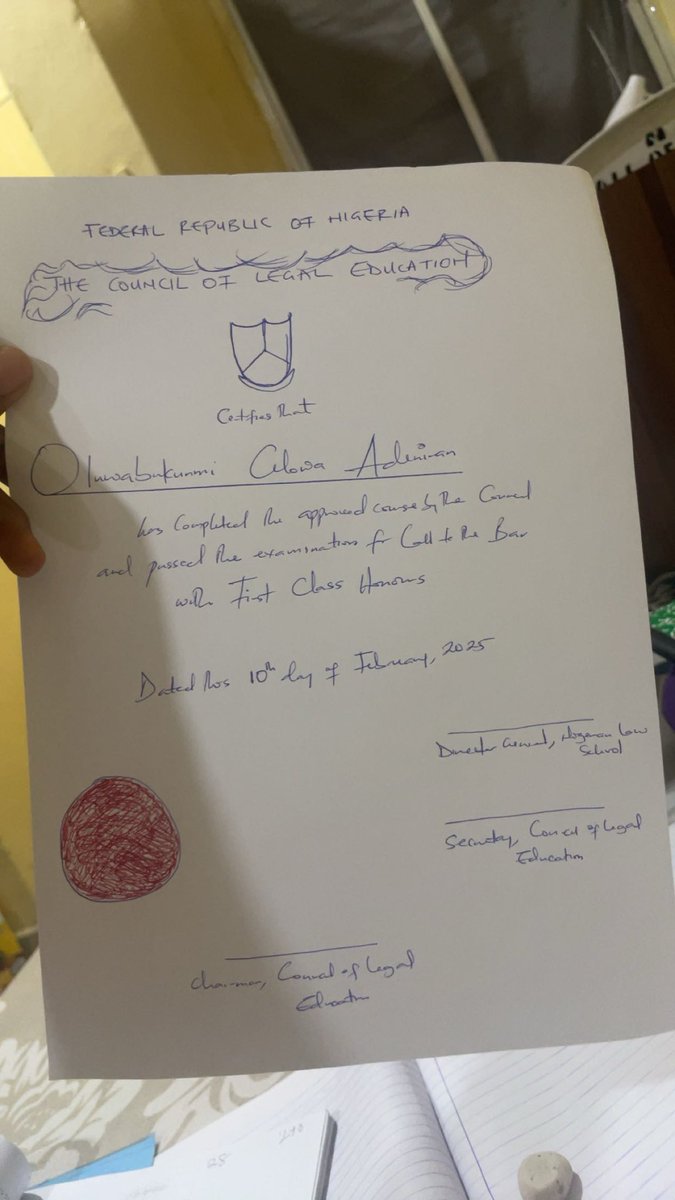 FEDERAL REPUBLIC OF NIGERIA
THE COUNCIL OF LEGAL EDUCATION
Certifies that
Oluwabukunmi Adeniran
has completed the approved course by the Council
and passed the examinations for Call to the Bar
with First Class Honours
Dated this 10th day of February, 2025
Director General, Nigerian Law
School
Secretary, Council of Legal
Education
Chairman, Council of Legal
Education
28